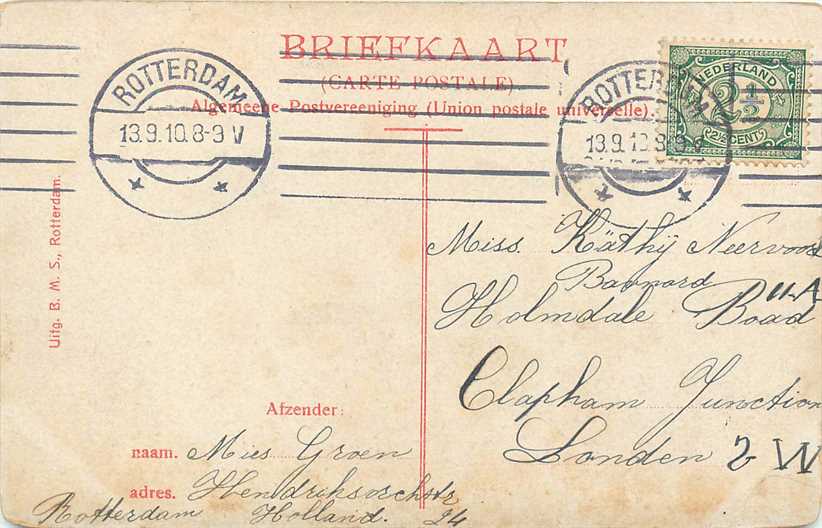 BRIEFKAART
(CARTE POSTALE).
Algemeene Postvereeniging (Union postale universelle).
ROTTERDAM
13.9.10.8-9 V
ROTTERDAM
13.9.10.8-9 V
NEDERLAND
2½
2½ CENT
Uitg. B. M. S., Rotterdam.
Miss. Käthij Neervoort
Holmdale Boad
Clapham Junction
Londen S W
Afzender:
naam. Mies Groen
adres. Hendriks
Rotterdam Holland. 24